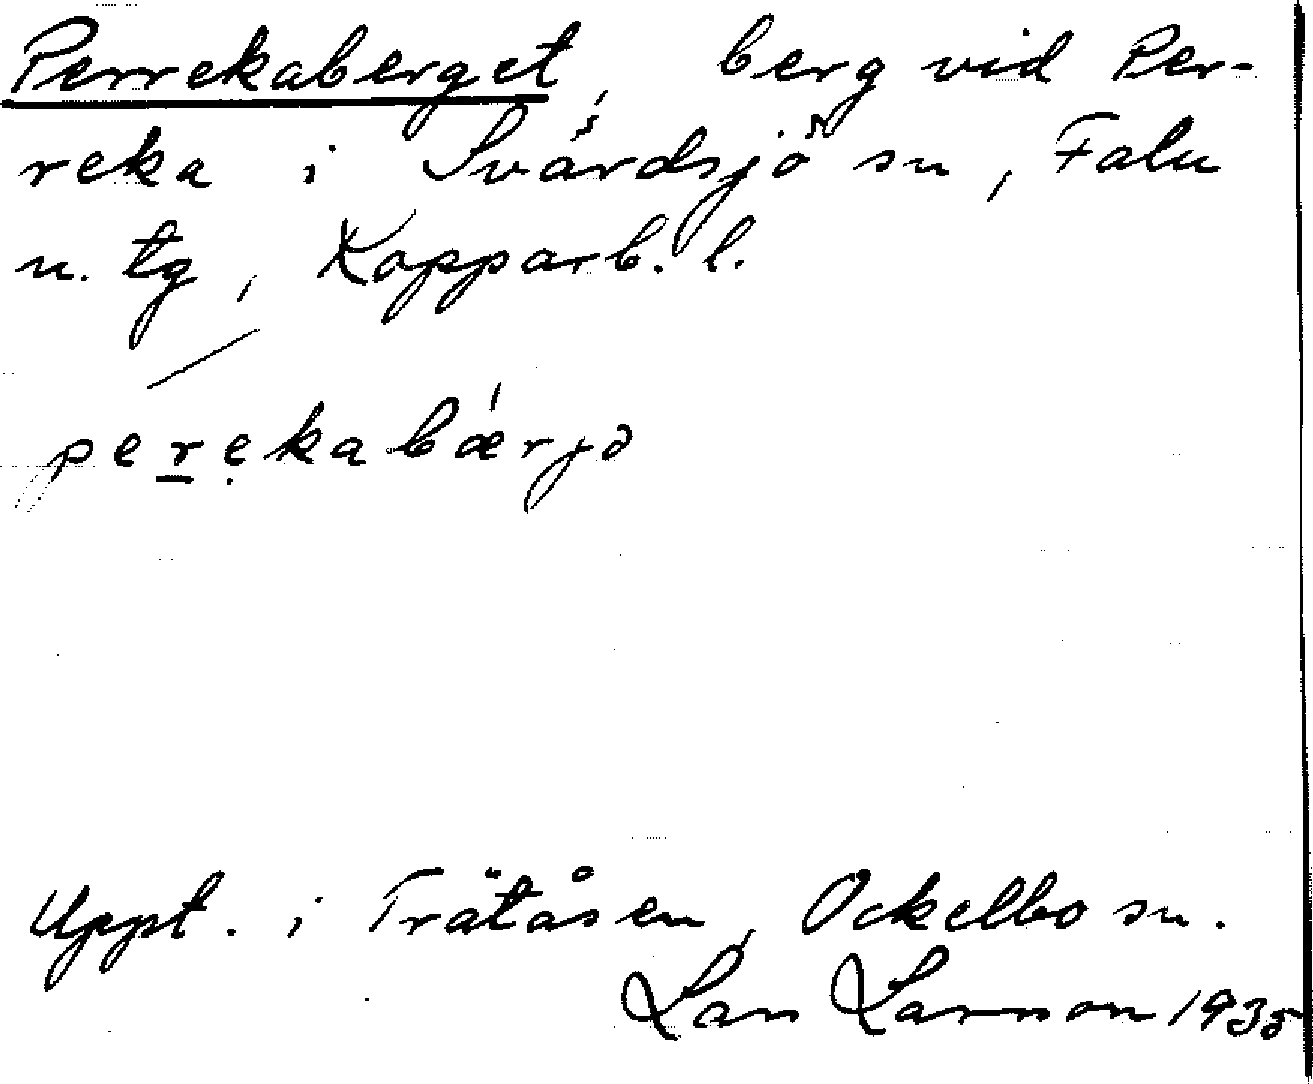 Perrekaberget, berg vid Per-
reka i Svärdsjö sn, Falu
n. tg, Kopparb. l.
perekabærjə
Uppt. i Trätåsen, Ockelbo sn.
Lars Larsson 1935